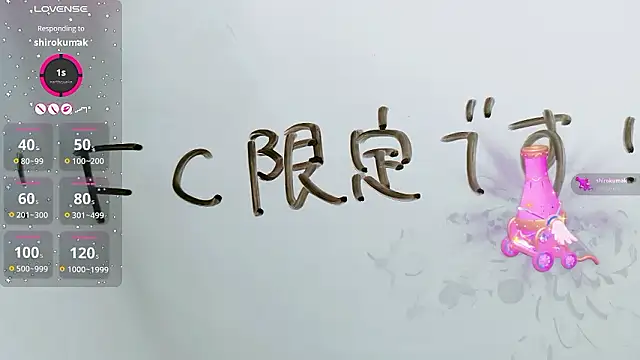 LOVENSE
Responding to
shirokumak
1s
40s
80~99
50s
100~200
60s
201~300
80s
301~499
100s
500~999
120s
1000~1999
FC限定です!
shirokumak